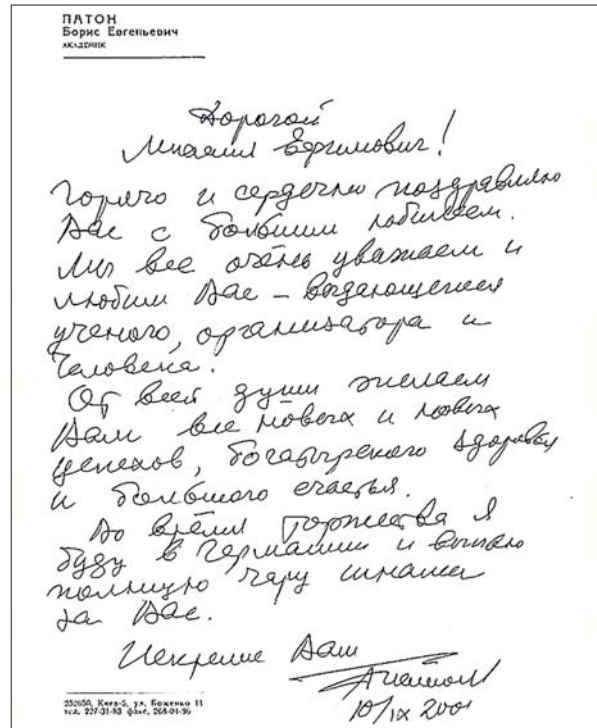 ПАТОН
Борис Евгеньевич
АКАДЕМИК
Дорогой
Михаил Ефимович!
Горячо и сердечно поздравляю
Вас с большим юбилеем.
Мы все очень уважаем и
любим Вас – выдающегося
ученого, организатора и
Человека.
От всей души желаем
Вам все новых и новых
успехов, богатырского здоровья
и большого счастья.
Во время торжества я
буду в Германии и выпью
полную чару
за Вас.
Искренне Ваш
10/IX 2001
252650, Киев-5, ул. Боженко 11
тел. 227-31-83 факс. 268-04-86